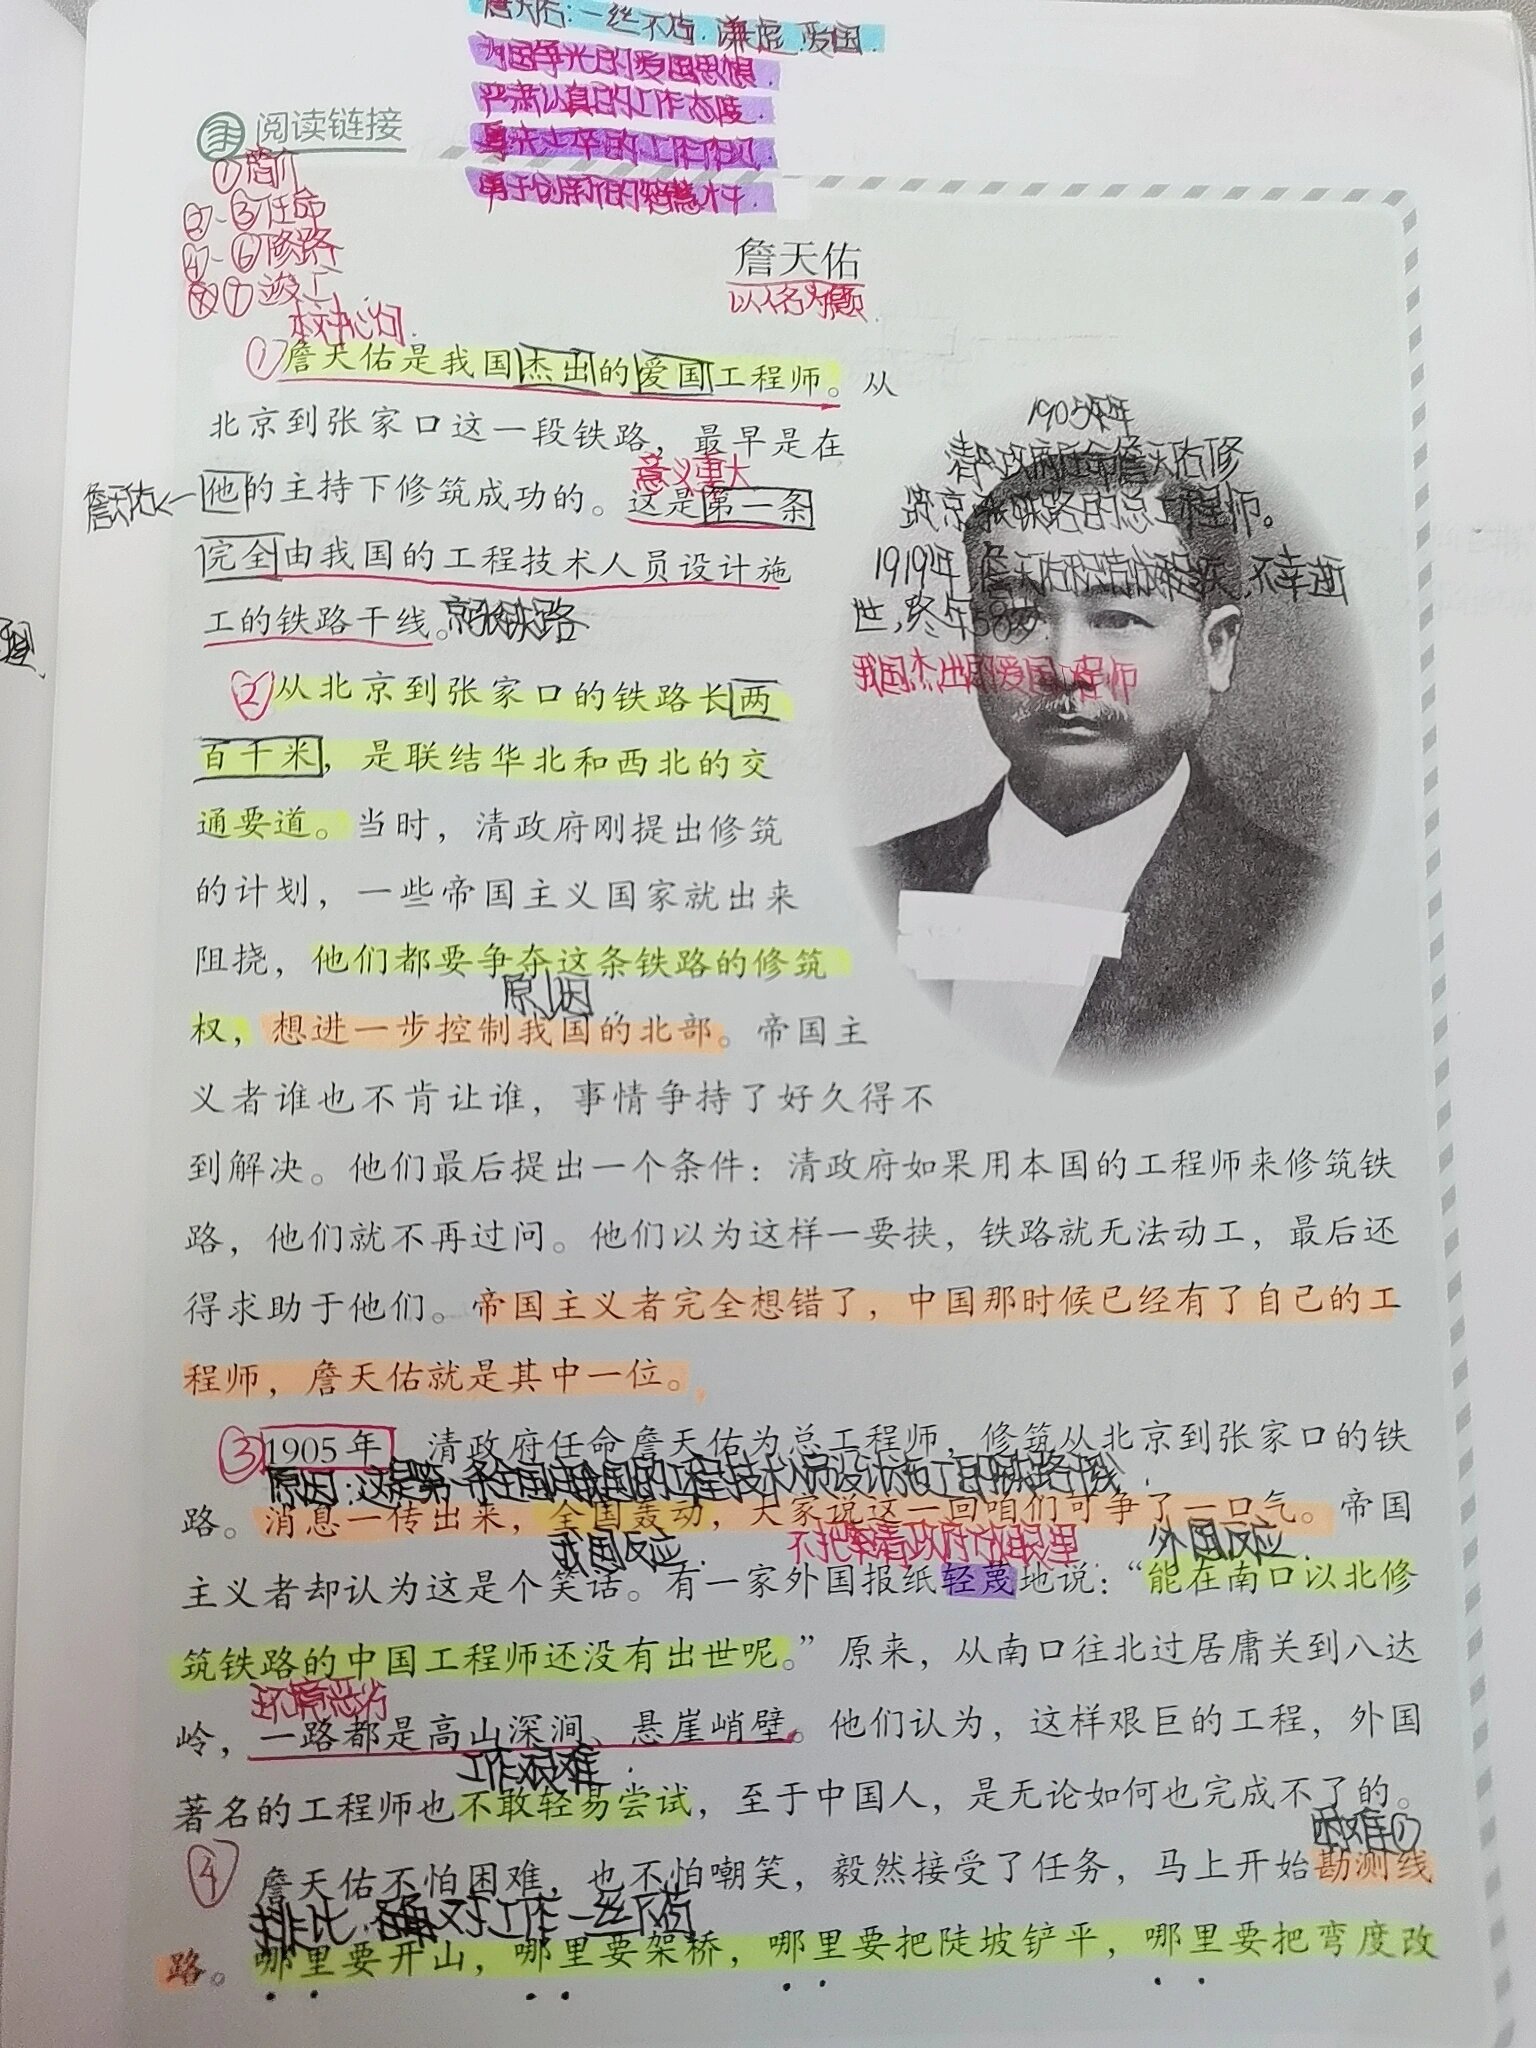 詹天佑：一丝不苟.谦虚.爱国.
为国争光的爱国思想.
严肃认真的工作态度.
身先士卒的工作作风.
勇于创新的智慧才干.
阅读链接
①简介
②-③任命
④-⑥修路
⑦竣工
本文中心句.
詹天佑
以人名为题.
①詹天佑是我国杰出的爱国工程师。从
北京到张家口这一段铁路，最早是在
意义重大
詹天佑←他的主持下修筑成功的。这是第一条
完全由我国的工程技术人员设计施
工的铁路干线。京张铁路
1905年
清政府任命詹天佑修
筑京张铁路的总工程师。
1919年,詹天佑因 不幸逝
世,终年58岁.
我国杰出的爱国工程师
②从北京到张家口的铁路长两
百千米，是联结华北和西北的交
通要道。当时，清政府刚提出修筑
的计划，一些帝国主义国家就出来
阻挠，他们都要争夺这条铁路的修筑
原因
权，想进一步控制我国的北部。帝国主
义者谁也不肯让谁，事情争持了好久得不
到解决。他们最后提出一个条件：清政府如果用本国的工程师来修筑铁
路，他们就不再过问。他们以为这样一要挟，铁路就无法动工，最后还
得求助于他们。帝国主义者完全想错了，中国那时候已经有了自己的工
程师，詹天佑就是其中一位。
③1905年，清政府任命詹天佑为总工程师，修筑从北京到张家口的铁
原因:这是第一条全由我国的工程技术人员设计施工的铁路干线.
路。消息一传出来，全国轰动，大家说这一回咱们可争了一口气。帝国
我国反应. 不把清政府放眼里. 外国反应.
主义者却认为这是个笑话。有一家外国报纸轻蔑地说：“能在南口以北修
筑铁路的中国工程师还没有出世呢。”原来，从南口往北过居庸关到八达
环境恶劣
岭，一路都是高山深涧、悬崖峭壁。他们认为，这样艰巨的工程，外国
工作艰难.
著名的工程师也不敢轻易尝试，至于中国人，是无论如何也完成不了的。
困难①
④詹天佑不怕困难，也不怕嘲笑，毅然接受了任务，马上开始勘测线
排比 对工作一丝不苟
路。哪里要开山，哪里要架桥，哪里要把陡坡铲平，哪里要把弯度改